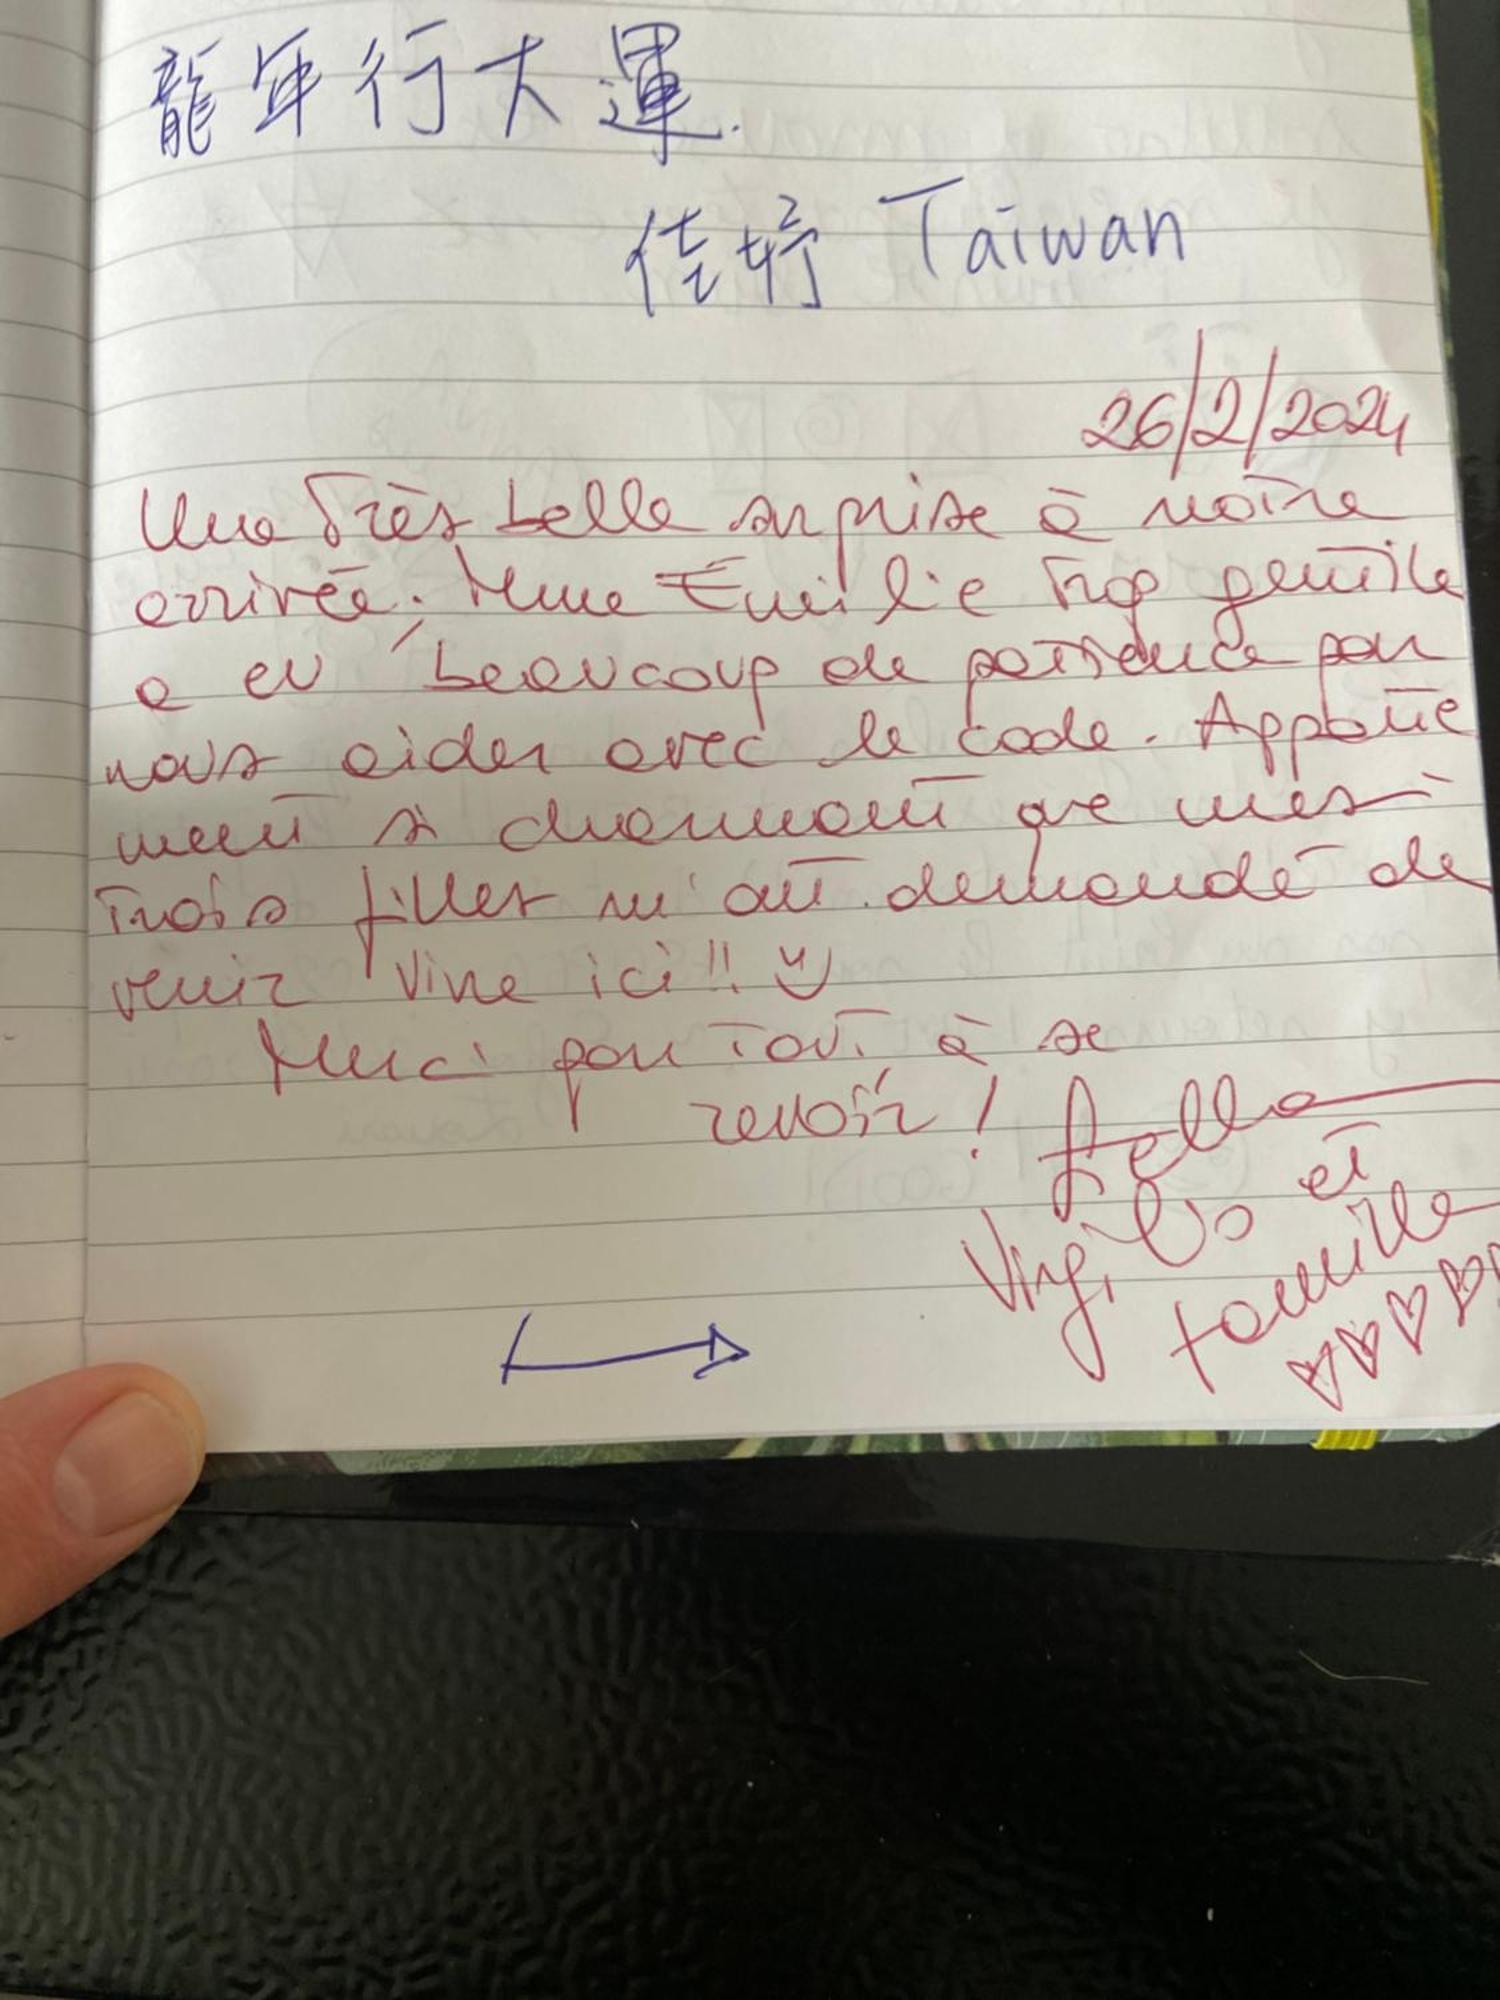 龍年行大運.
佳婷 Taiwan
26/2/2024
Une très belle surprise à notre
arrivée. Mme Emilie trop gentile
a eu beaucoup de patience pour
nous aider avec le code. Appate
ment si charmant que mes
trois filles m'ont demandé de
venir vivre ici!!
Merci pour tout à se
revoir!
Virgilio et
famille